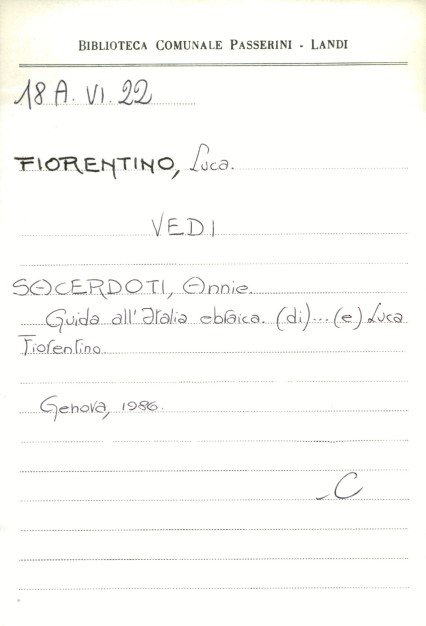 BIBLIOTECA COMUNALE PASSERINI - LANDI
18 A. VI. 22
FIORENTINO, Luca.
VEDI
SACERDOTI, Annie.
Guida all'Italia ebraica. (di)... (e) Luca
Fiorentino
Genova, 1986.
C